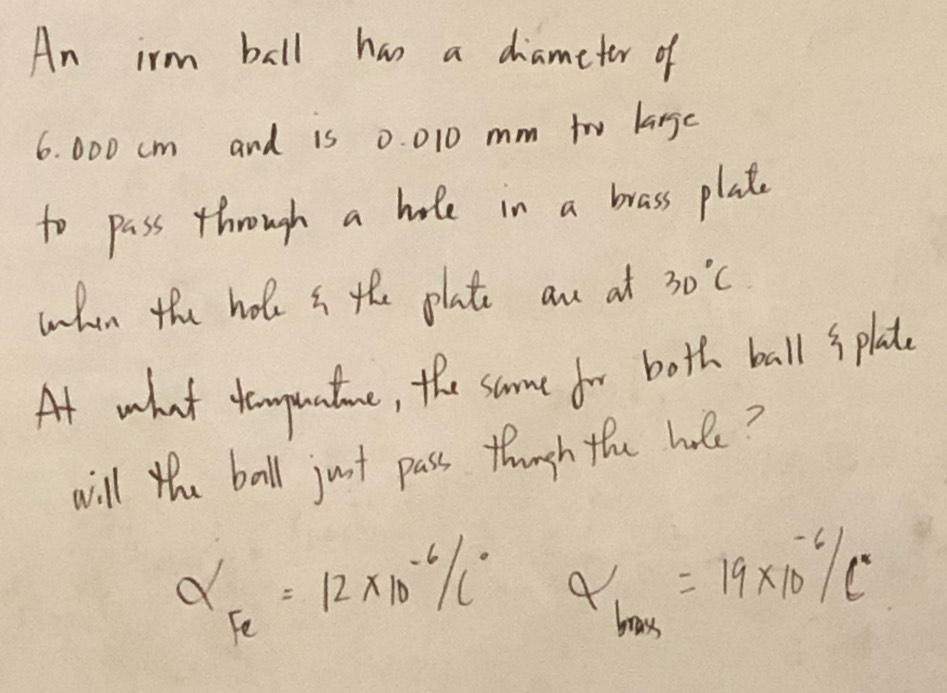 An iron ball has a diameter of
6.000 cm and is 0.010 mm too large
to pass through a hole in a brass plate
when the hole & the plate are at 30°C.
At what temperature, the same for both ball & plate
will the ball just pass through the hole?
α_Fe = 12 x 10^-6/C° α_brass = 19 x 10^-6/C°